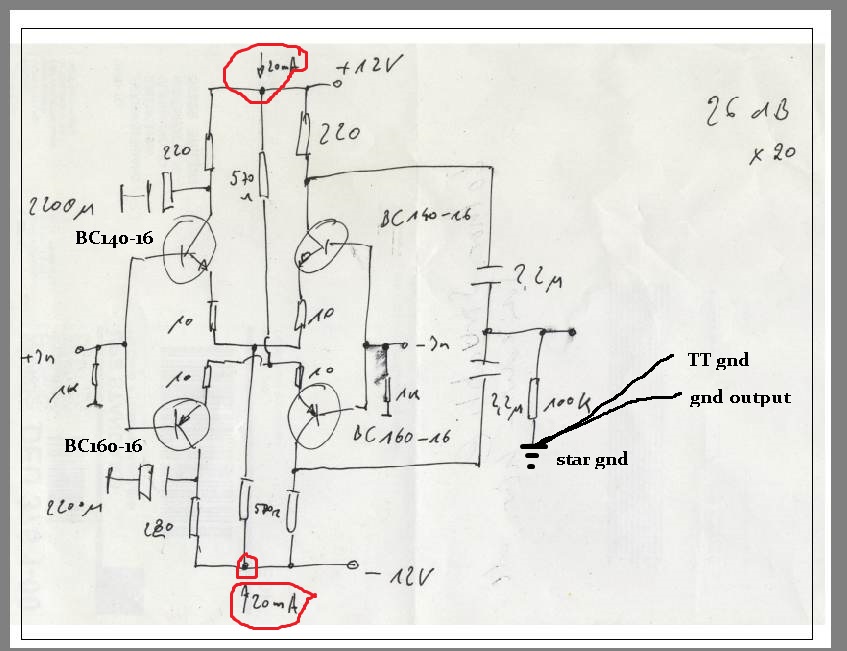 20mA
+12V
26 dB
x 20
220
220
570
Ω
2200µ
BC140-16
BC140-16
2,2µ
10
10
+In
-In
1K
10
10
1K
TT gnd
2,2µ
100K
gnd output
BC160-16
BC160-16
star gnd
2200µ
220
-12V
20mA